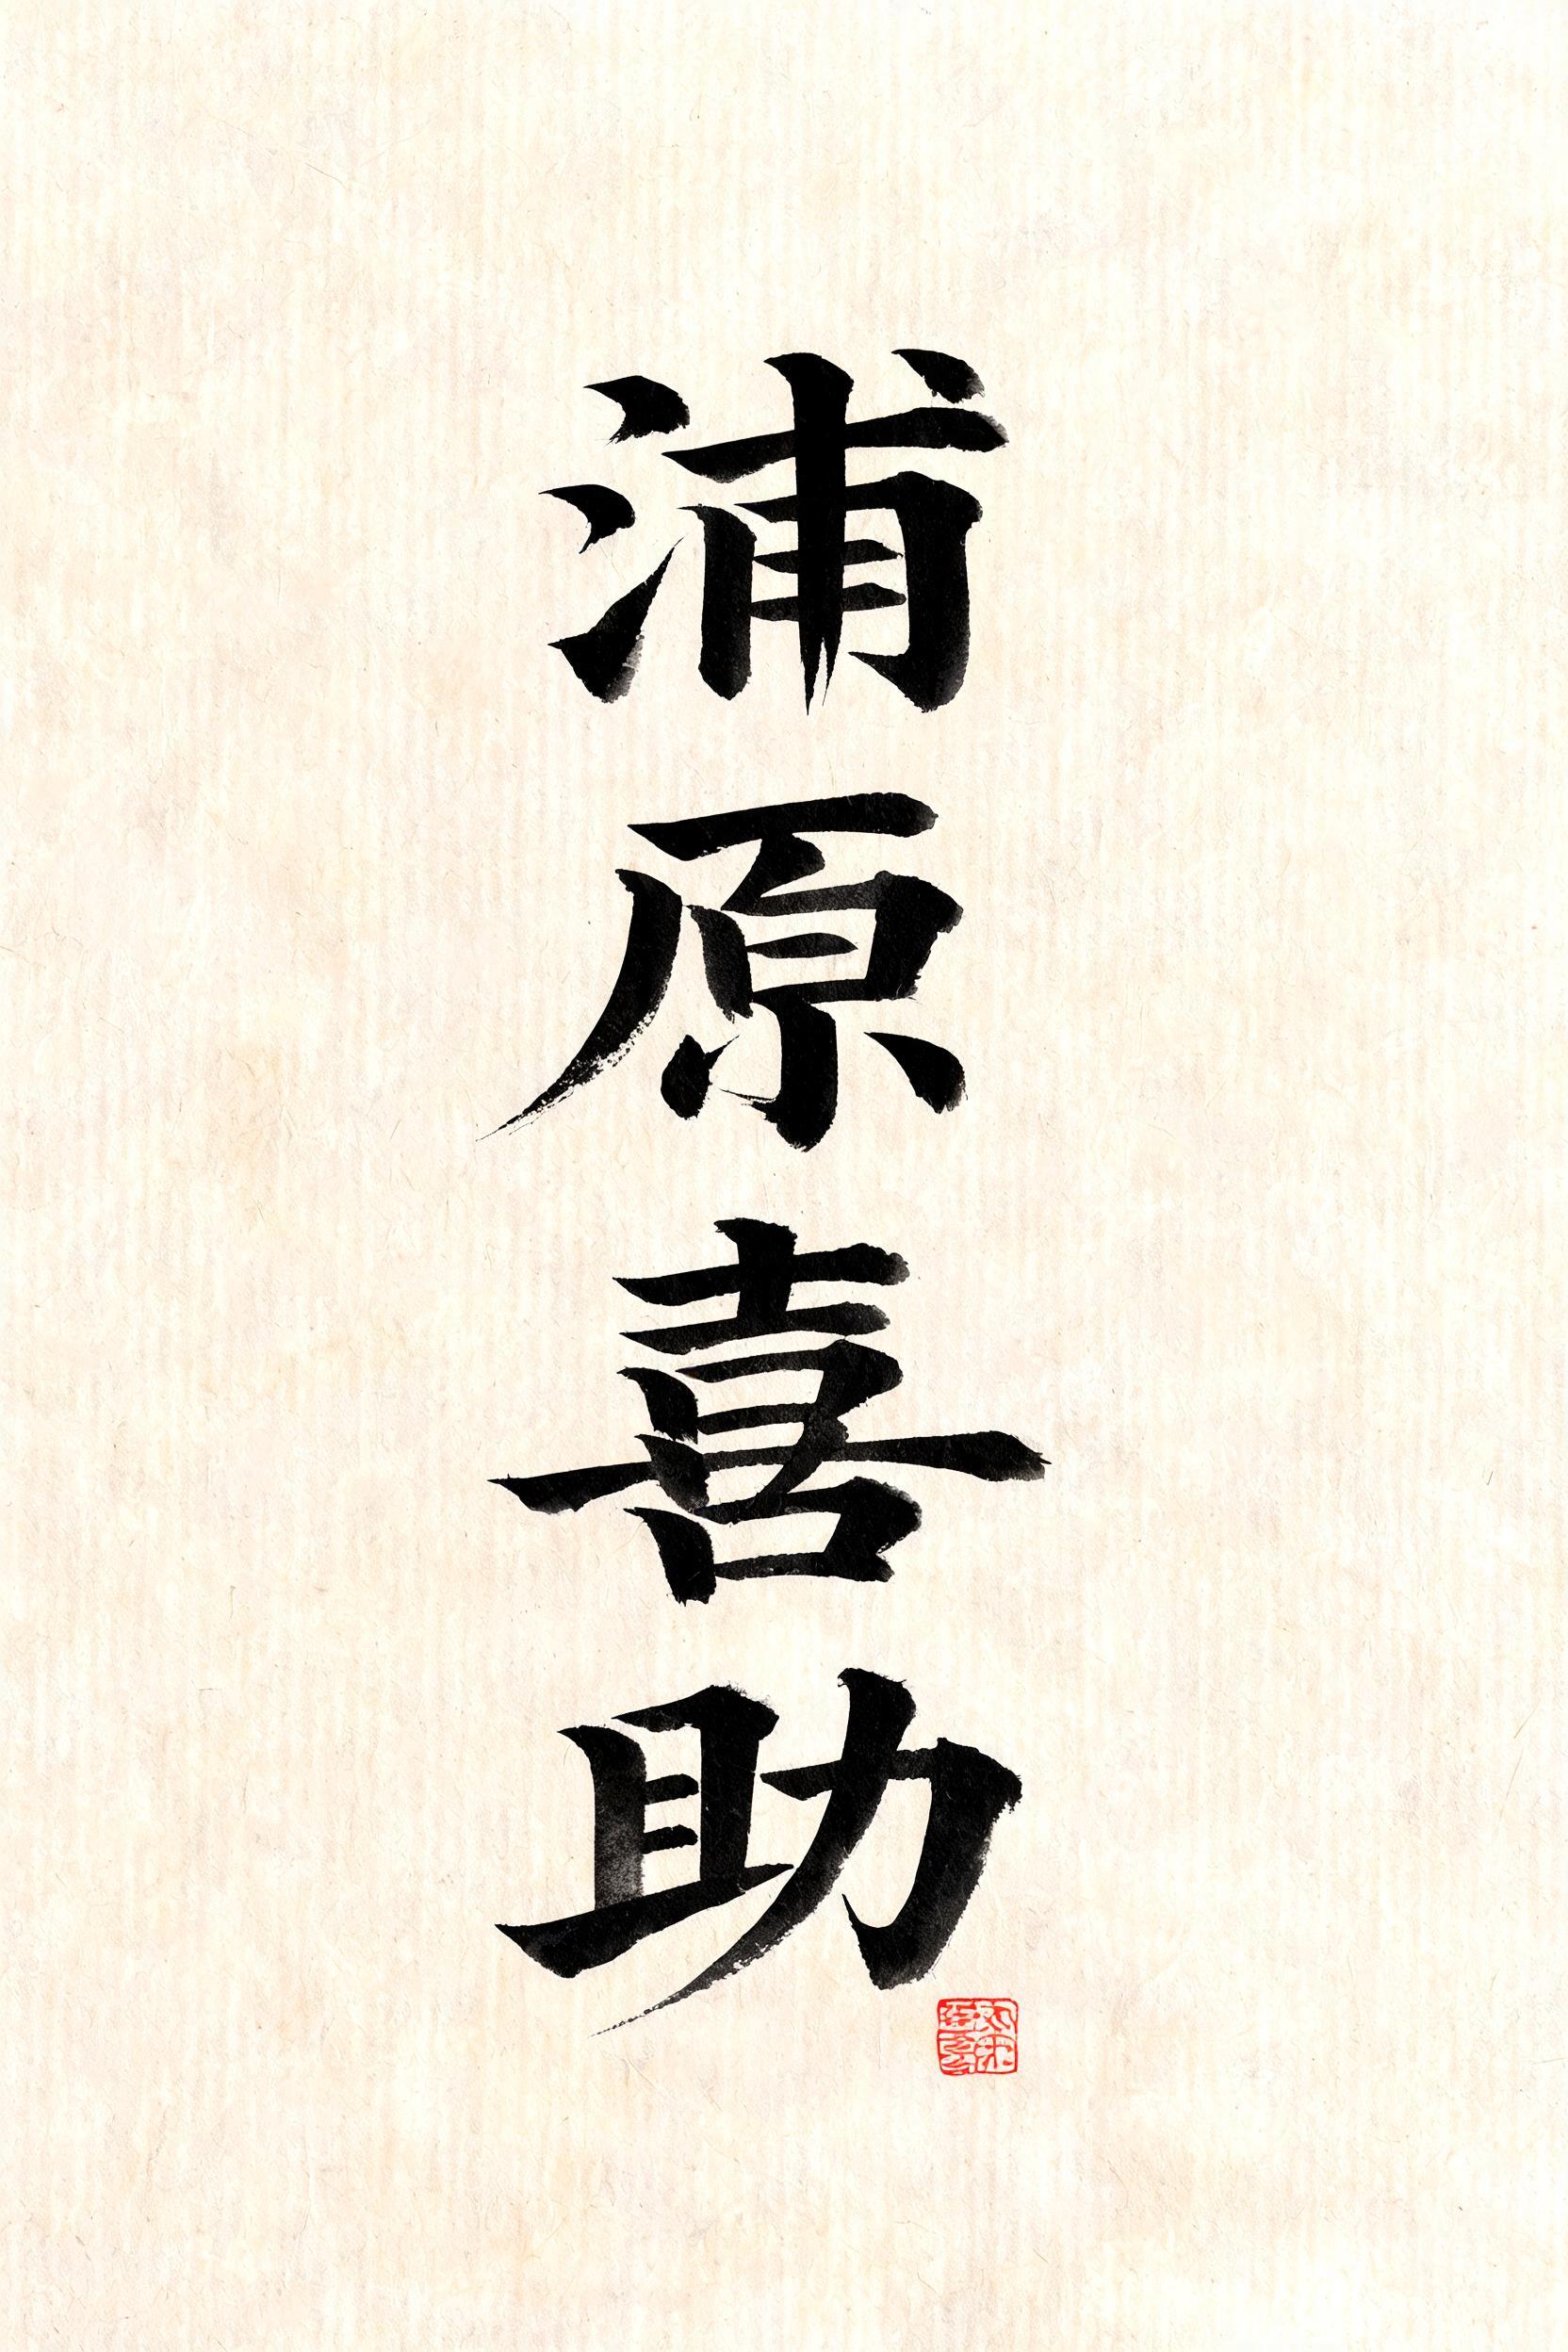 浦原喜助